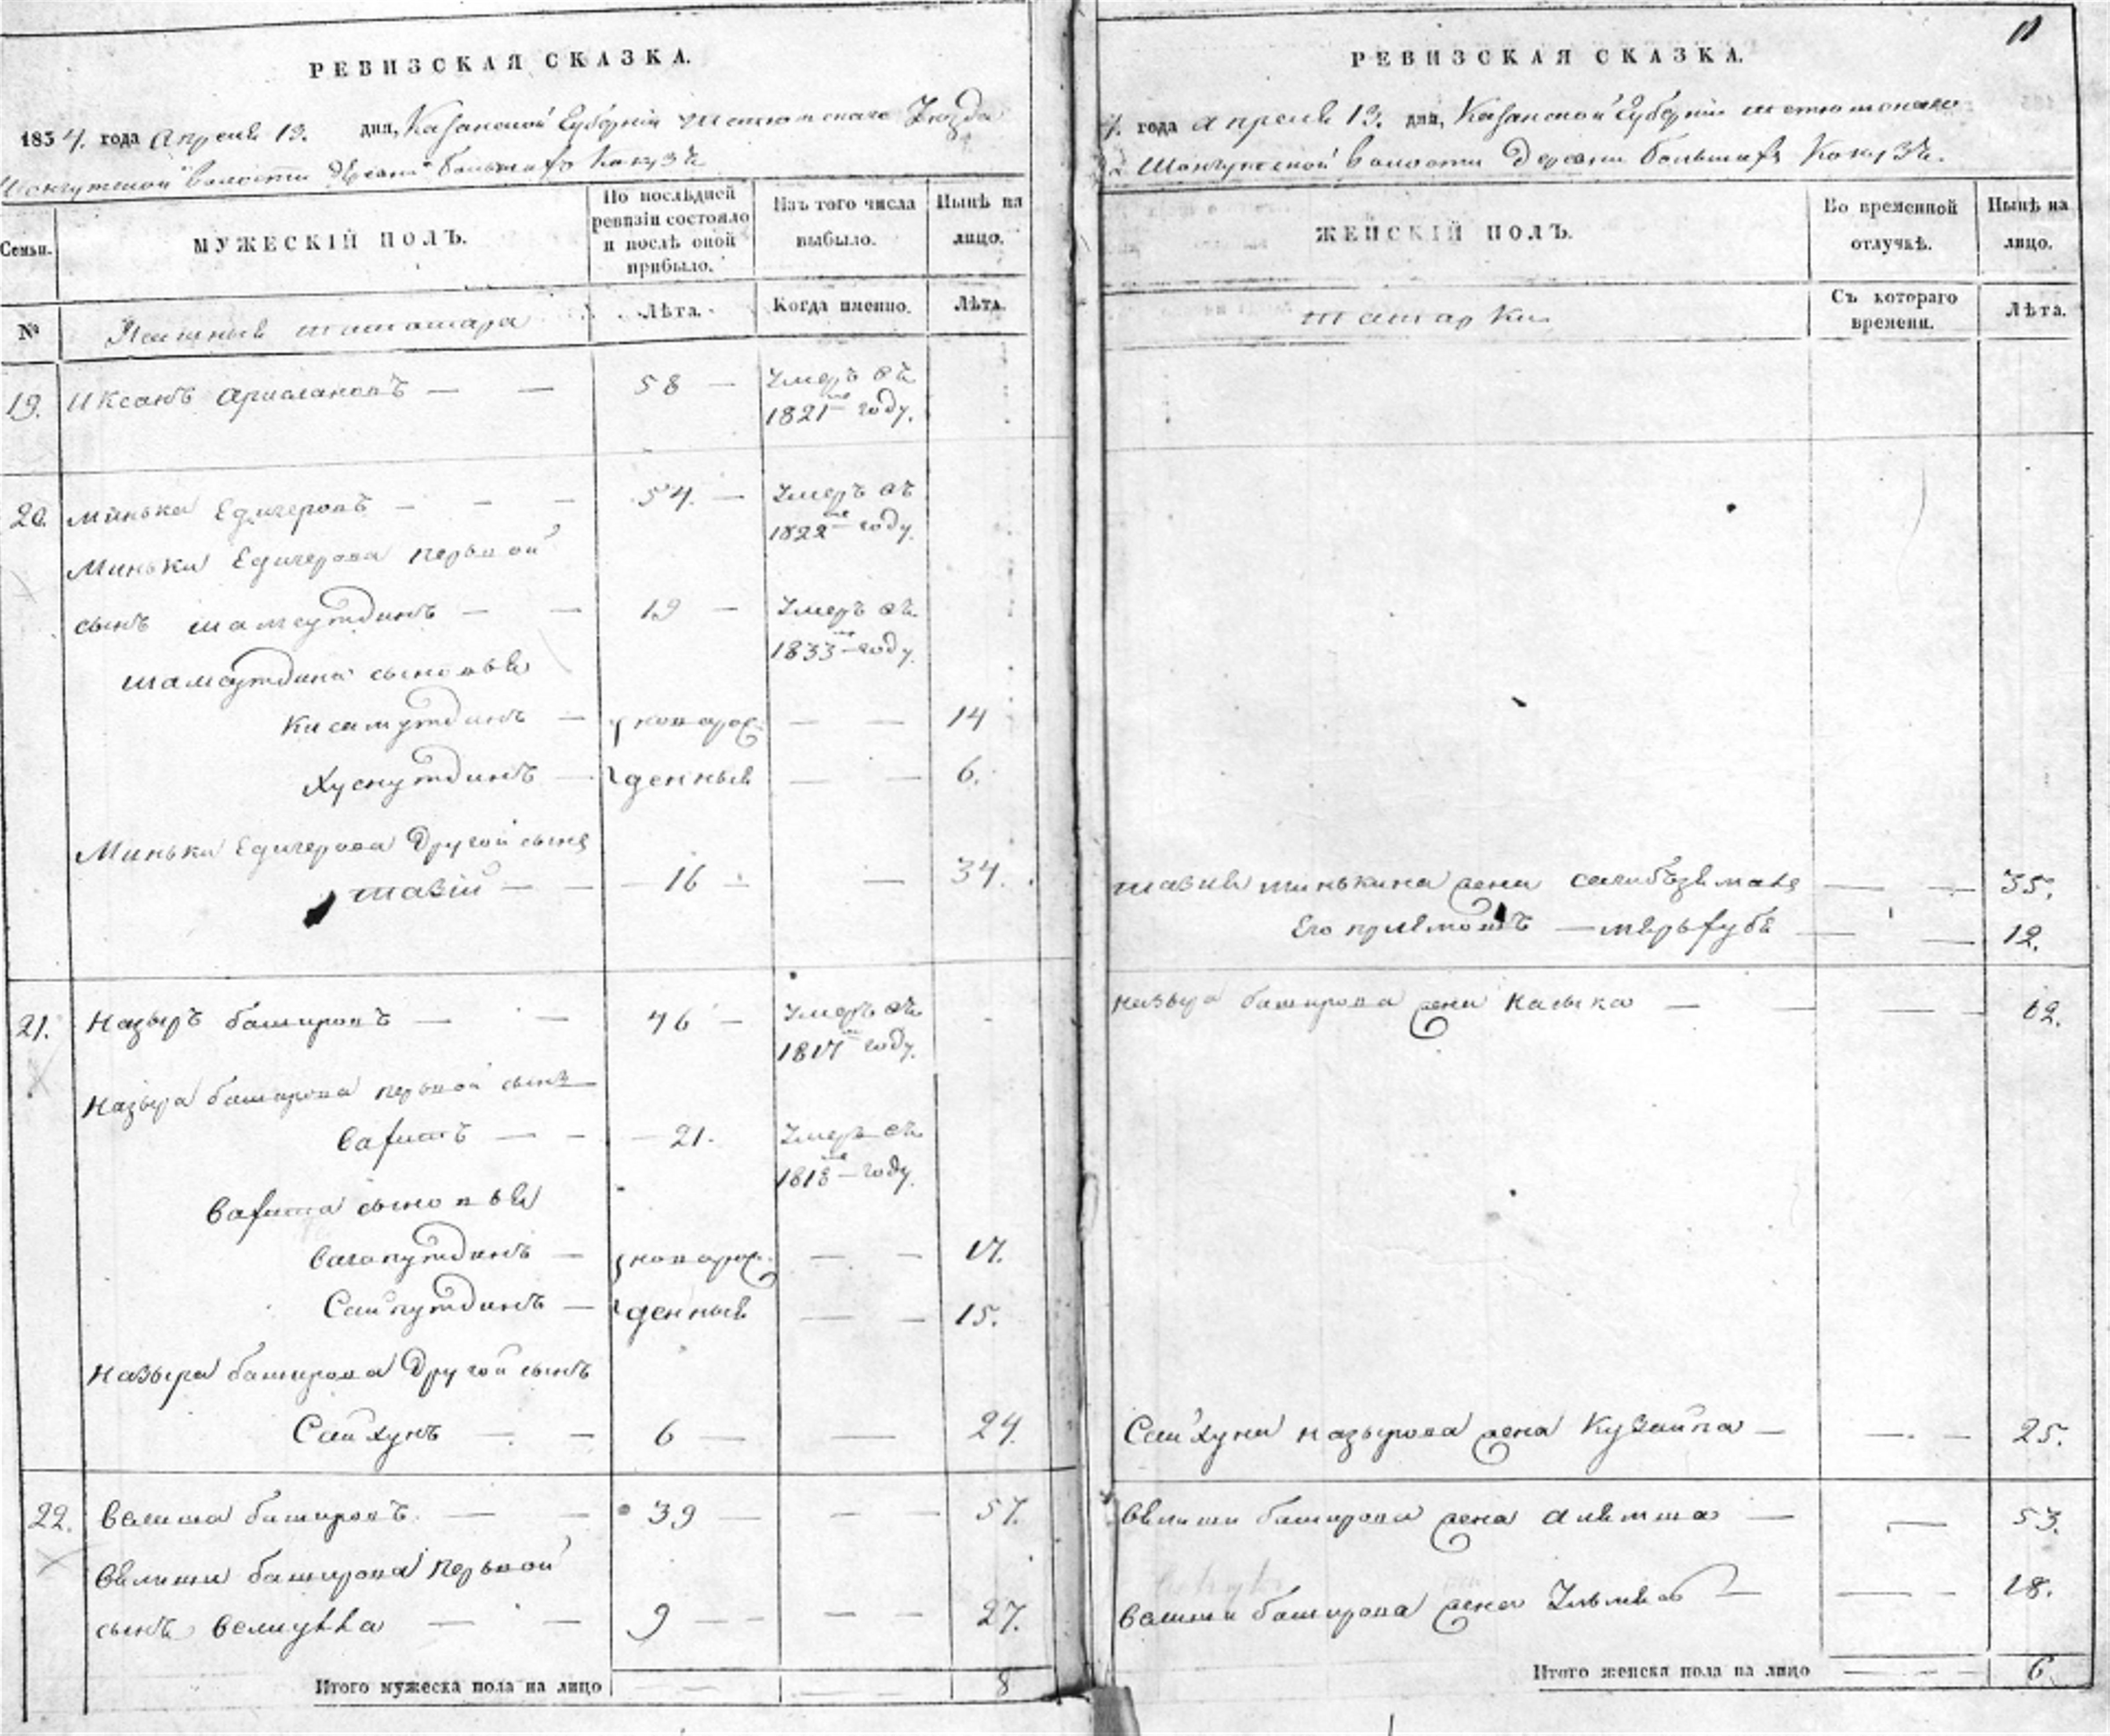 РЕВИЗСКАЯ СКАЗКА.
1834. года Апреля 13. дня, Казанской Губернии тетюшскаго Уезда
волости Деревни большаго
Семьи. МУЖЕСКІЙ ПОЛЪ. По послѣдней ревизіи состояло и послѣ оной прибыло. Изъ того числа выбыло. Нынѣ на лицо.
№ татара Лѣта. Когда именно. Лѣта.
19. Иксанъ Арислановъ — — 58 — Умеръ въ
1821ме году.
20. Минька Едигеровъ — — — 54. — Умеръ въ
1822ме году.
Миньки Едигерова первой
сынъ шамсутдинъ — — 19 — Умеръ въ
1833ме году.
шамсутдина сыновья
Кисамутдинъ — новорож- — — 14
Хуснутдинъ — денныя — — 6.
Миньки Едигерова Другой сынъ
тавій — — 16 — — 34.
21. Назыръ башировъ — — 46 — Умеръ въ
году.
Назыра баширова первой сынъ
Вафитъ — — — 21. Умеръ въ
1818ме году.
Вафита сыновья
Вагапутдинъ — новорож- — — 17.
Сайпутдинъ — денныя — — 15.
Назыра баширова Другой сынъ
Сайхунъ — — 6 — — 24.
22. Велиша башировъ. — — 39 — — — 57.
Велиши баширова Первой
сынъ Велиулла — — 9 — — — — 27.
Итого мужеска пола на лицо — — — 8
11
РЕВИЗСКАЯ СКАЗКА.
4. года апреля 13. дня, Казанской Губернии тетюшскаго
волости Деревни большаго
ЖЕНСКІЙ ПОЛЪ. Во временной отлучкѣ. Нынѣ на лицо.
татарки Съ котораго времени. Лѣта.
тавия минькина жена — — 35.
Его — — — 12.
Назыра баширова жена — — — — 62.
Сайхуна назырова жена — — — 25.
Велиши баширова жена — — — 53.
Велиши баширова жена — — — 18.
Итого женска пола на лицо — — — 6.